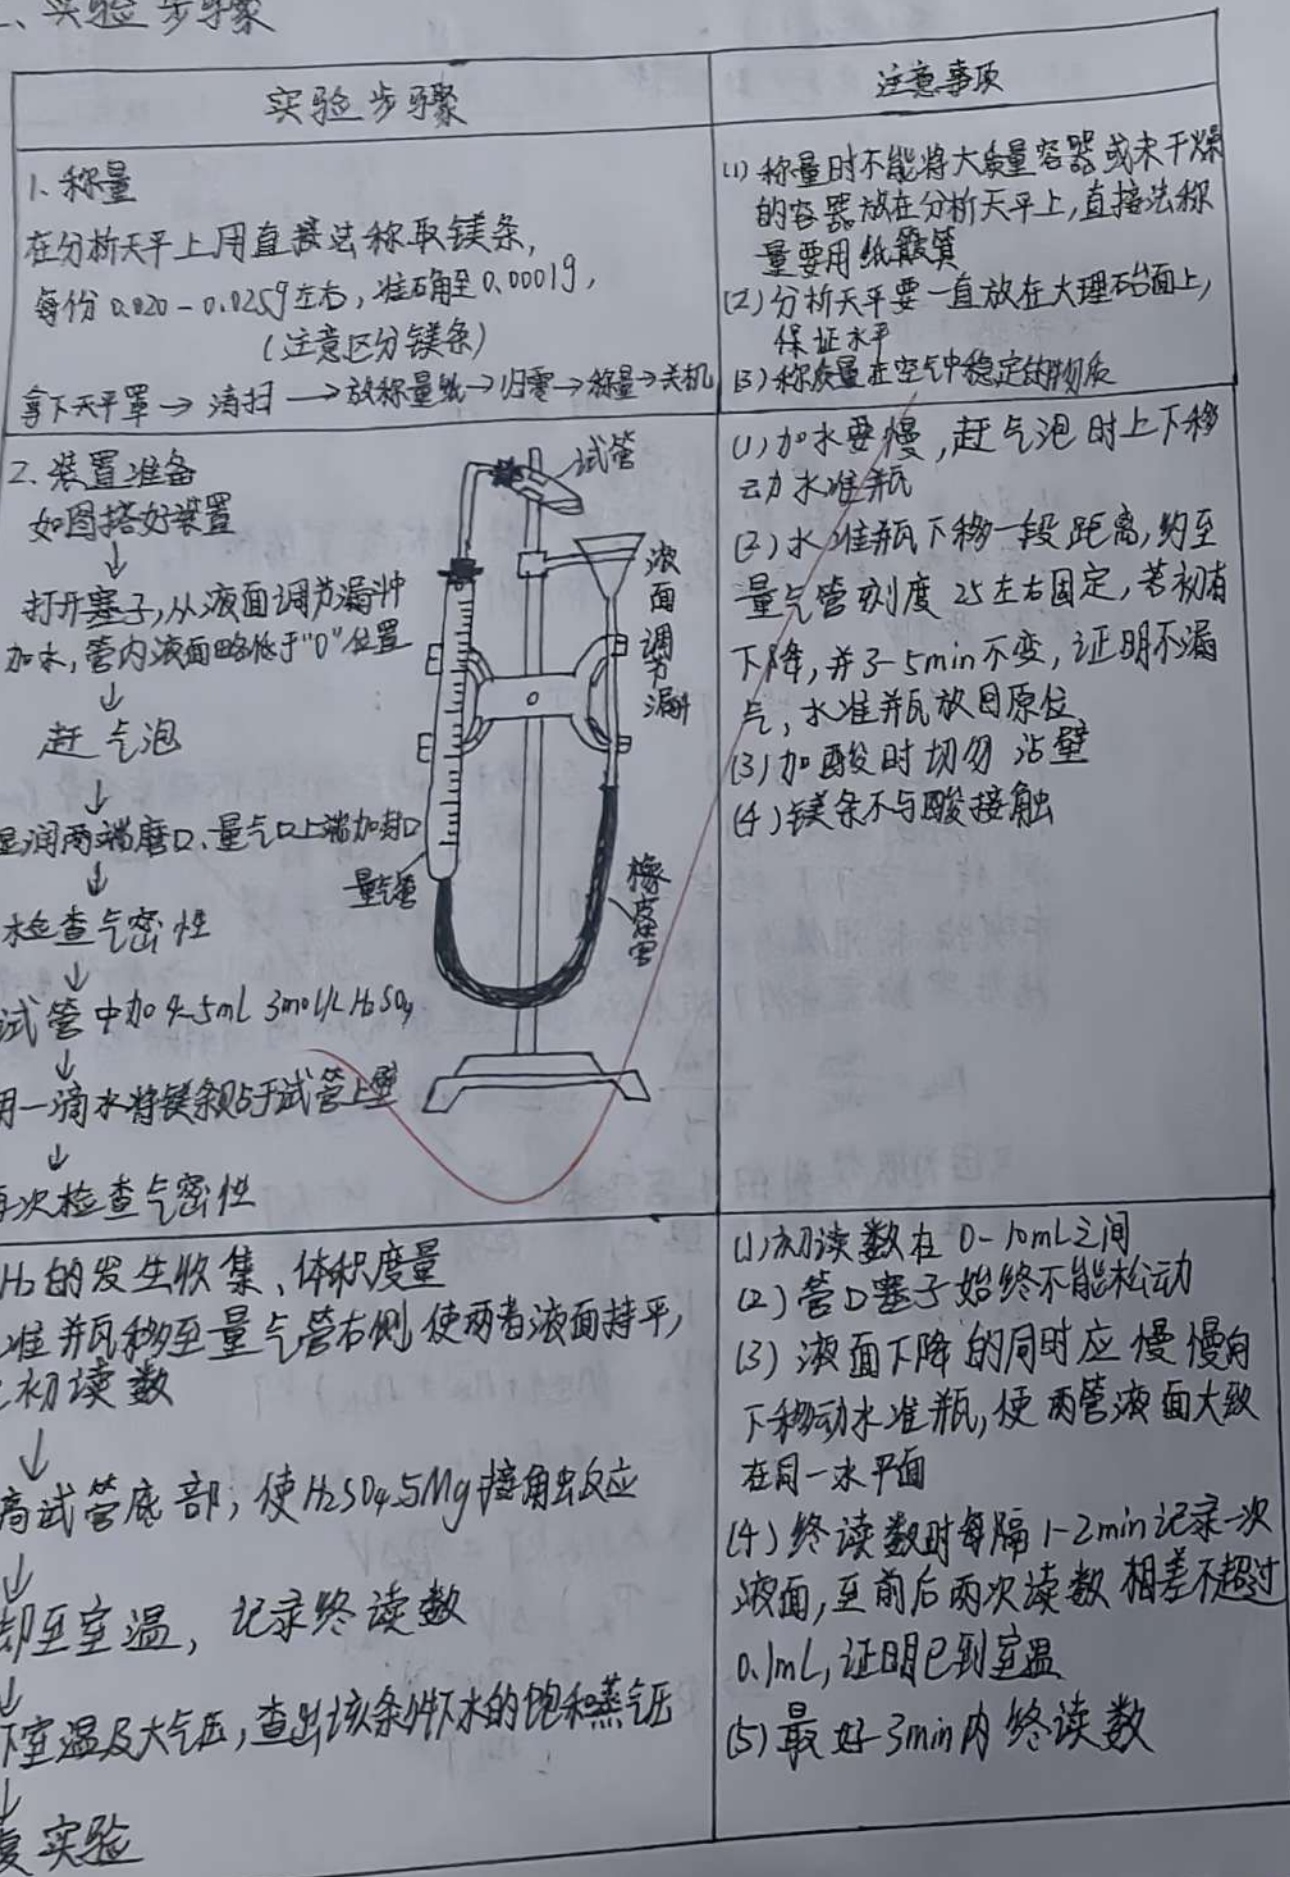 实验步骤
实验步骤
注意事项
1.称量
在分析天平上用直接法称取镁条,
每份0.020-0.025g左右,准确至0.0001g,
(注意区分镁条)
拿下天平罩→清扫→放称量纸→归零→称量→关机
(1)称量时不能将大质量容器或未干燥
的容器放在分析天平上,直接法称
量要用纸
(2)分析天平要一直放在大理石台面上,
保证水平
(3)称质量在空气中稳定的物质
2.装置准备
如图搭好装置
↓
打开塞子,从液面调节漏斗中
加水,管内液面略低于"0"位置
↓
赶气泡
↓
湿润两端磨口、量气口上端加封口
↓
检查气密性
↓
试管中加4-5mL 3mol/L H₂SO₄
↓
用一滴水将镁条贴于试管上壁
↓
再次检查气密性
试管
液面调节漏斗
量气管
橡皮管
(1)加水要慢,赶气泡时上下移
动水准瓶
(2)水准瓶下移一段距离,约至
量气管刻度25左右固定,若初有
下降,并3-5min不变,证明不漏
气,水准瓶放回原位
(3)加酸时切勿沾壁
(4)镁条不与酸接触
H₂的发生收集、体积度量
准瓶移至量气管右侧使两者液面持平,
初读数
↓
高试管底部,使H₂SO₄与Mg接触反应
↓
却至室温,记录终读数
↓
下室温及大气压,查出该条件下水的饱和蒸气压
↓
复实验
(1)初读数在0-10mL之间
(2)管口塞子始终不能松动
(3)液面下降的同时应慢慢向
下移动水准瓶,使两管液面大致
在同一水平面
(4)终读数时每隔1-2min记录一次
液面,至前后两次读数相差不超过
0.1mL,证明已到室温
(5)最好3min内终读数